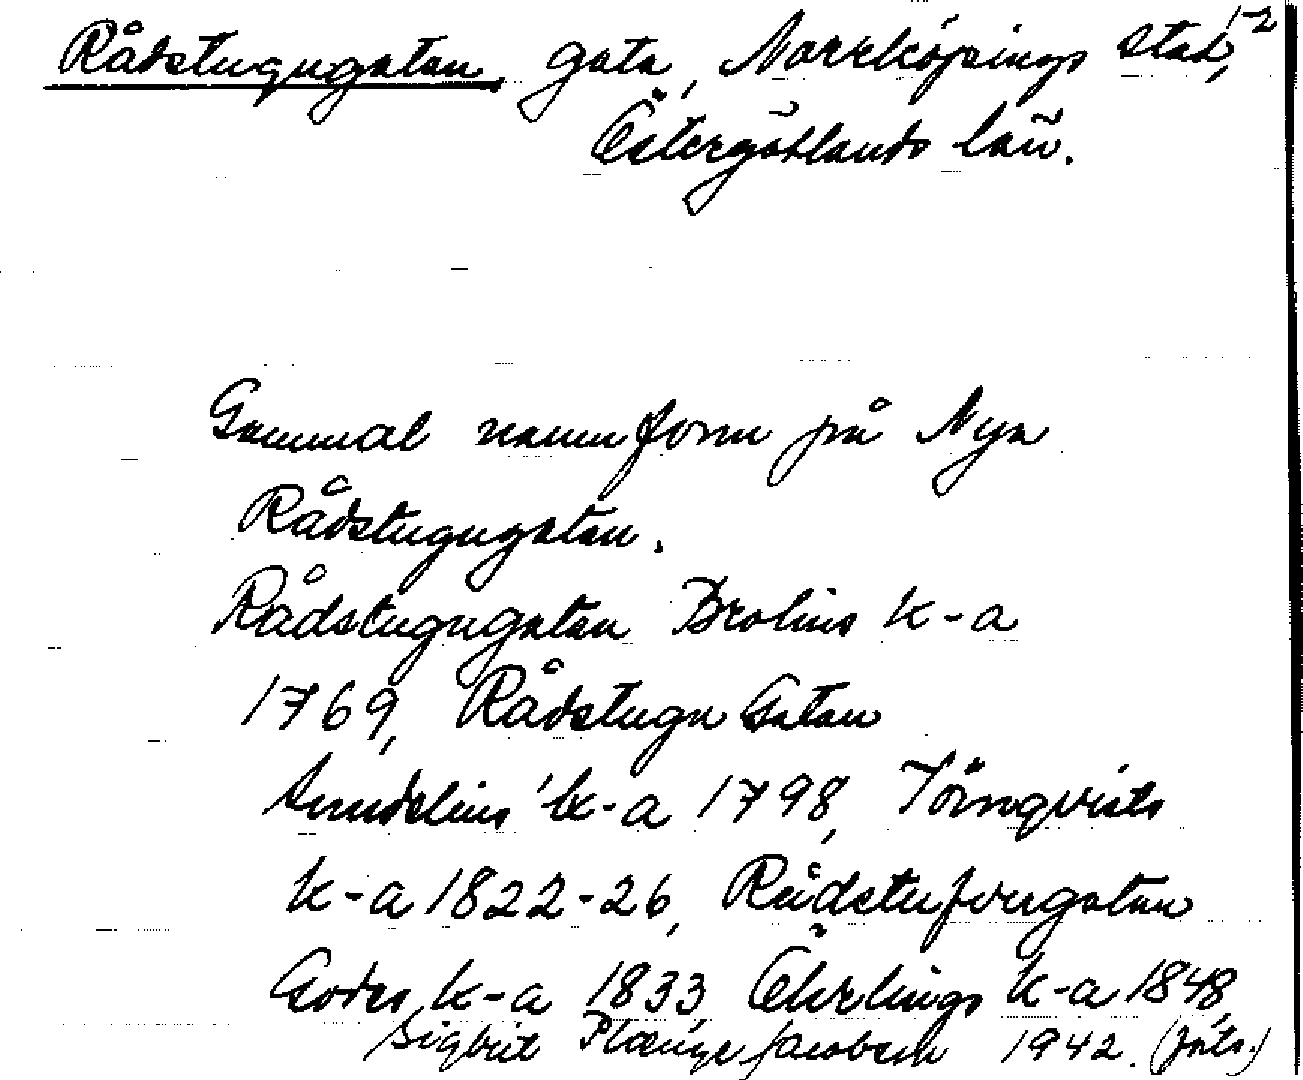 Rådstugugatan, gata, Norrköpings stad, 1-2
Östergötlands län.
Gammal namnform på Nya
Rådstugugatan.
Rådstugugatan Brolins k-a
1769, Rådstugu Gatan
Sundelius' k-a 1798, Törnqvists
k-a 1822-26, Rådstufvugatan
Godes k-a 1833, Öhrlings k-a 1848,
Sigbrit Plænge Jacobson 1942. (forts.)